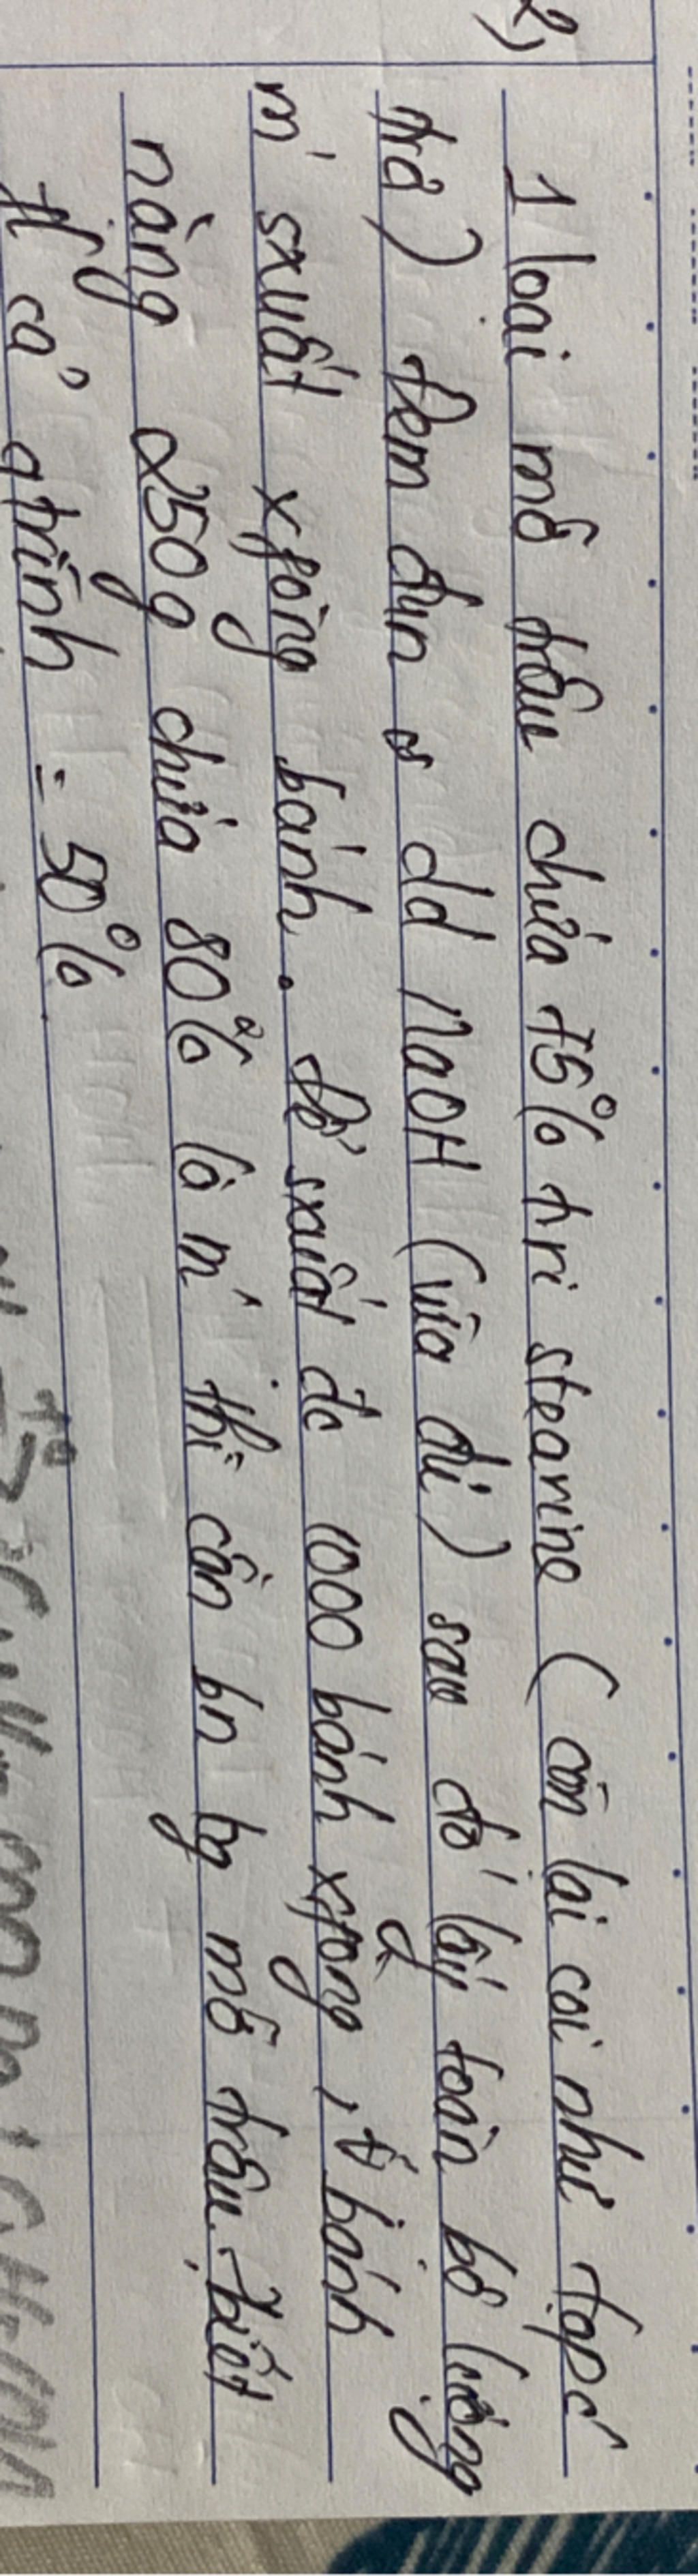 2)
1 loại mỡ trâu chứa 75% tri stearine (còn lại coi như tạpc'
trơ) đem đun s dd NaOH (vừa đủ) sau đó lấy toàn bộ lượng
m' sxuất xfòng bánh. Để sxuất đc 1000 bánh xfòng, bánh
nặng 250g chứa 80% là m' thì cần bn kg mỡ trâu. biết
H cả qtrình = 50%